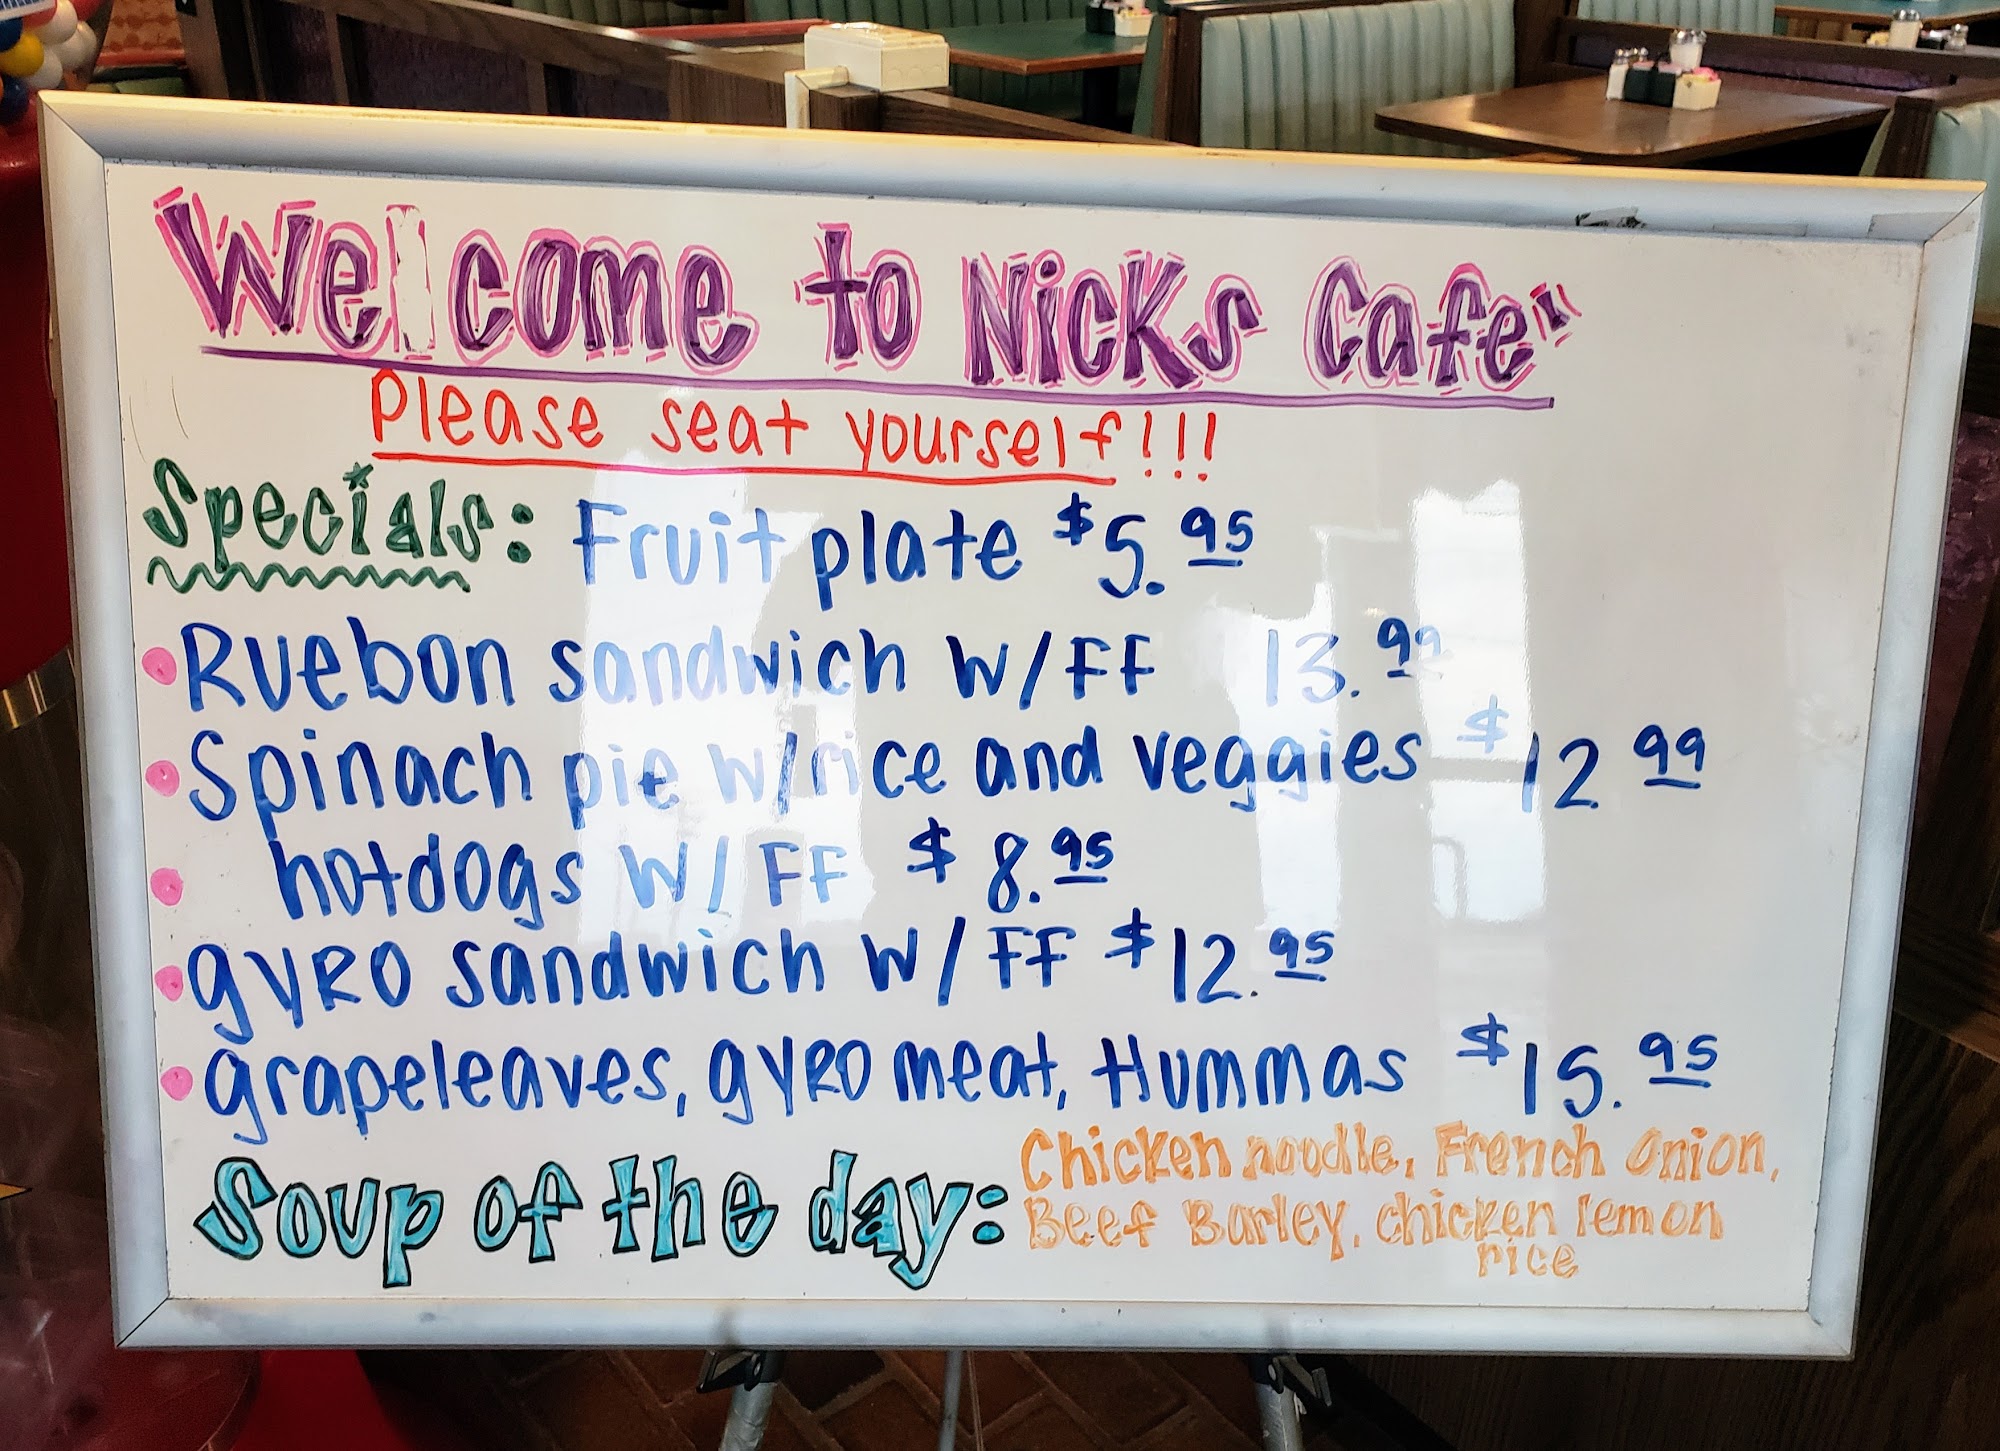 Welcome to Nicks Cafe'
Please seat yourself!!!
Specials: Fruit plate $5.95
• Ruebon sandwich w/FF 13.99
• Spinach pie w/rice and veggies $12 99
• hotdogs w/FF $8.95
• gyRO sandwich w/FF $12.95
• grapeleaves, gyRO meat, Hummas $15.95
Soup of the day: Chicken noodle, French Onion,
Beef Barley, chicken lemon
rice